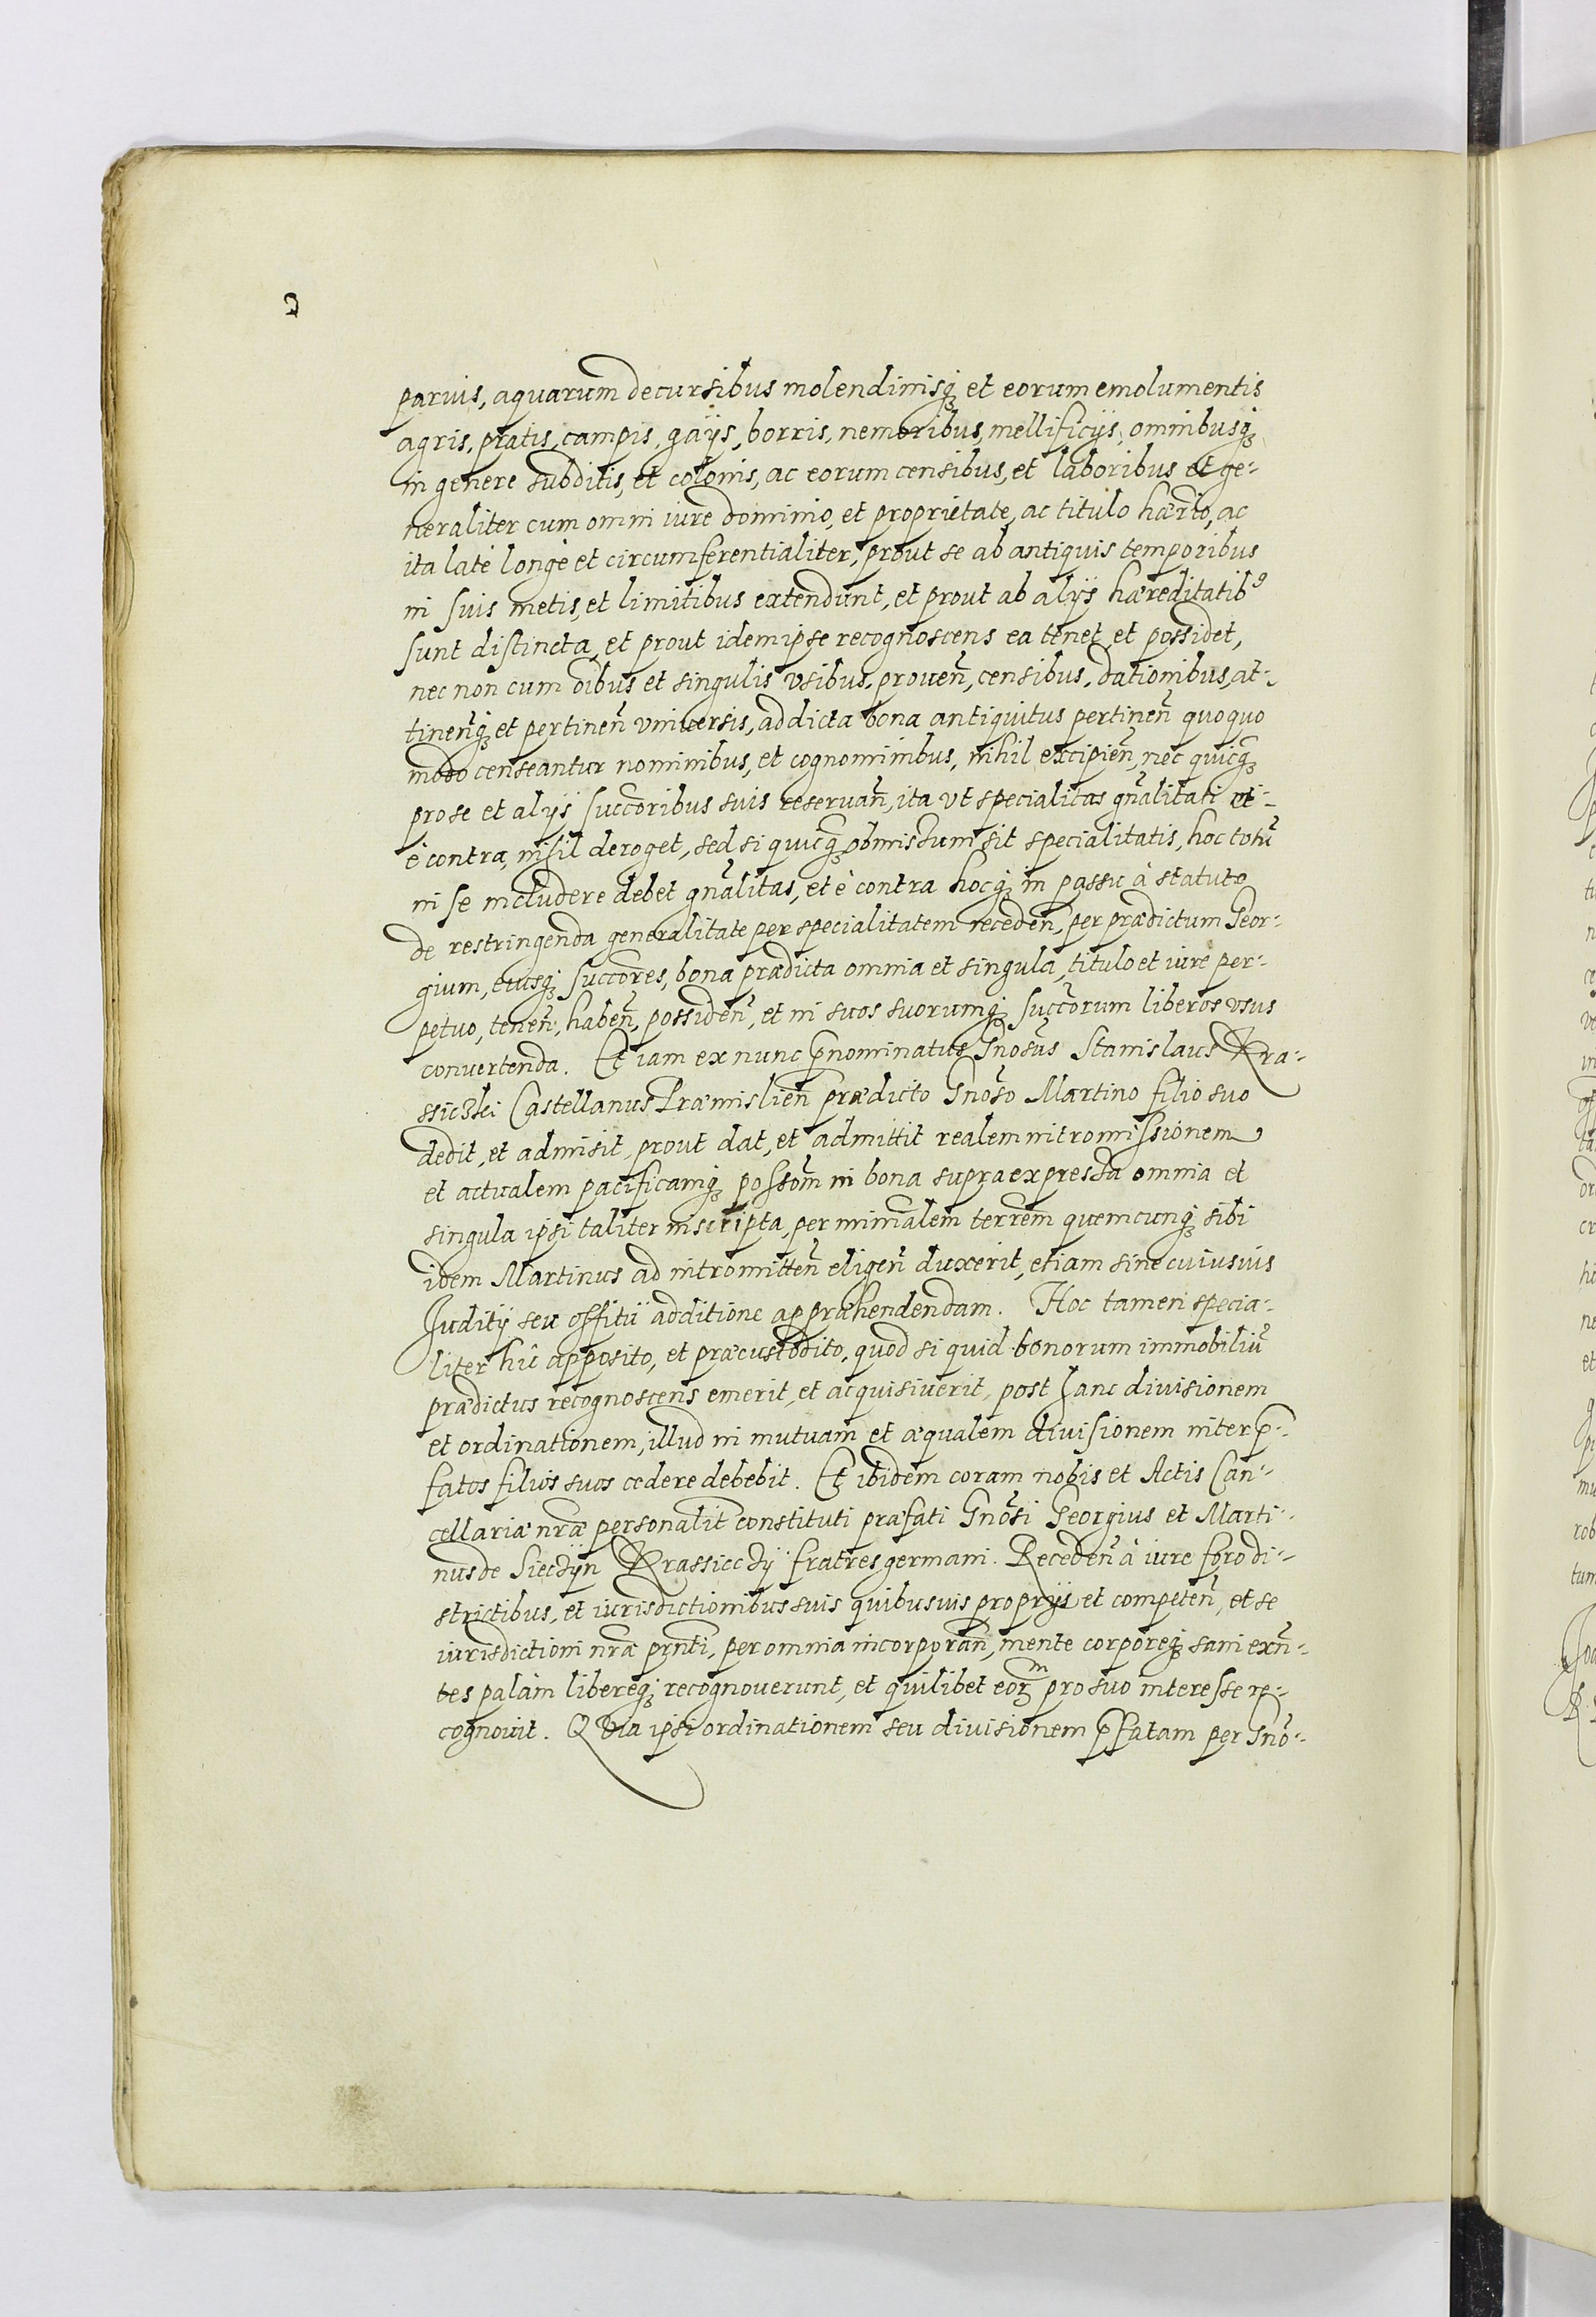 paruis, aquarum decursibus molendinisq₃ et eorum emolumentis
agris, pratis, campis, gaÿs, borris, nemoribus, mellificÿs, omnibusq₃
in genere subditis, et colonis, ac eorum censibus, et laboribus et ge-
neraliter cum omni iure dominio, et proprietate, ac titulo hærto, ac
ita latè longè et circumferentialiter, prout se ab antiquis temporibus
in suis metis, et limitibus extendunt, et prout ab alÿs hæreditatibꝰ
sunt distincta, et prout idem ipse recognoscens ea tenet, et possidet,
nec non cum oĩbus et singulis vsibus, prouen̄, censibus, dationibus, at-
tinen̄q₃ et pertinen̄ vniuersis, ad dicta bona antiquitus pertinen̄ quoquo
modo censeantur nominibus, et cognominibus, nihil excipien̄, nec quicq̃₃
pro se et alÿs succoribus suis reseruan̄, ita vt specialitas gñalitati et
è contra, nihil deroget, sed si quicq̃₃ obmissum sit specialitatis, hoc totũ
in se includere debet gñalitas, et è contra hocq₃ in passu à statuto
de restringenda generalitate per specialitatem receden̄, per prædictum Geor-
gium, eiusq₃ succores, bona prædicta omnia et singula, titulo et iure per-
petuo, tenen̄, haben̄, possiden̄, et in suos suorumq₃ succorum liberos vsus
conuertenda. Et iam ex nunc p̄nominatus Gnosus Stanislaus Kra-
ssiczki Castellanus Præmislien̄ prædicto Gnoso Martino filio suo
dedit, et admisit, prout dat, et admittit realem intromissionem
et actualem pacificamq₃ possom̄ in bona supra expressa omnia et
singula ipsi taliter inscripta, per minālem terrem̄ quemcunq₃ sibi
idem Martinus ad intromitten̄ eligen̄ duxerit, etiam sine cuiusuis
Juditÿ seu offitÿ additione appræhendendam. Hoc tamen specia-
liter hîc apposito, et præcustodito, quod si quid bonorum immobiliũ
prædictus recognoscens emerit, et acquisiuerit, post hanc diuisionem
et ordinationem, illud in mutuam et æqualem diuisionem inter p̄-
fatos filios suos cedere debebit. Et ibidem coram nobis et Actis Can-
cellariæ nræ personalit̄ constituti præfati Gnōsi Georgius et Marti-
nus de Siecÿn Krassiccÿ fratres germani. Receden̄ à iure foro di-
strictibus, et iurisdictionibus suis quibusuis proprÿs et competen̄, et se
iurisdictioni nræ pr̄nti, per omnia incorporan̄, mente corporeq₃ sani exñ-
tes palàm libereq₃ recognouerunt, et quilibet eoꝝᵐ pro suo interesse re-
cognouit. QVia ipsi ordinationem seu diuisionem p̄fatam per Gnō-